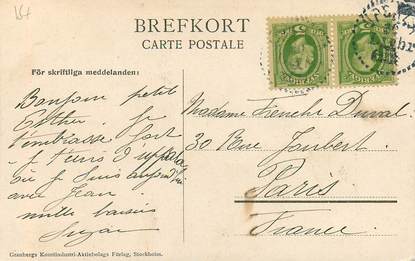 BREFKORT
CARTE POSTALE
För skriftliga meddelanden:
Bonjour petit
Esther. Je
t'embrasse fort
d'Upsala
où je suis aujourd'hui
avec Jean
mille baisers
Suzan
Madame Frenche Duval
30 Rue Joubert.
Paris
France.
Granbergs Konstindustri-Aktiebolags Förlag, Stockholm.
SVERIGE
SVERIGE